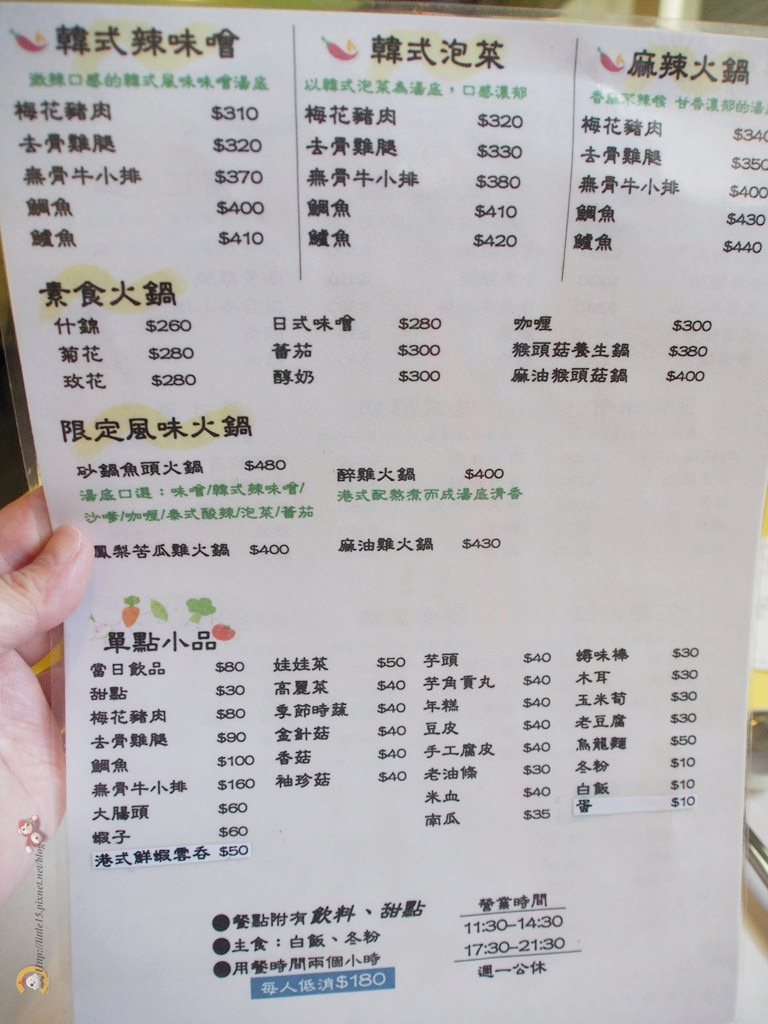 韓式辣味噌
微辣口感的韓式風味味噌湯底
梅花豬肉 $310
去骨雞腿 $320
無骨牛小排 $370
鯛魚 $400
鱸魚 $410
韓式泡菜
以韓式泡菜為湯底，口感濃郁
梅花豬肉 $320
去骨雞腿 $330
無骨牛小排 $380
鯛魚 $410
鱸魚 $420
麻辣火鍋
香麻不辣喉 甘香濃郁的湯
梅花豬肉 $340
去骨雞腿 $350
無骨牛小排 $400
鯛魚 $430
鱸魚 $440
素食火鍋
什錦 $260
菊花 $280
玫花 $280
日式味噌 $280
蕃茄 $300
醇奶 $300
咖哩 $300
猴頭菇養生鍋 $380
麻油猴頭菇鍋 $400
限定風味火鍋
砂鍋魚頭火鍋 $480
湯底口選：味噌/韓式辣味噌/
沙嗲/咖哩/泰式酸辣/泡菜/蕃茄
醉雞火鍋 $400
港式配熬煮而成湯底清香
鳳梨苦瓜雞火鍋 $400
麻油雞火鍋 $430
單點小品
當日飲品 $80
甜點 $30
梅花豬肉 $80
去骨雞腿 $90
鯛魚 $100
無骨牛小排 $160
大腸頭 $60
蝦子 $60
港式鮮蝦雲吞 $50
娃娃菜 $50
高麗菜 $40
季節時蔬 $40
金針菇 $40
香菇 $40
袖珍菇 $40
芋頭 $40
芋角貢丸 $40
年糕 $40
豆皮 $40
手工腐皮 $40
老油條 $30
米血 $40
南瓜 $35
蟳味棒 $30
木耳 $30
玉米筍 $30
老豆腐 $30
烏龍麵 $50
冬粉 $10
白飯 $10
蛋 $10
●餐點附有飲料、甜點
●主食：白飯、冬粉
●用餐時間兩個小時
每人低消$180
營業時間
11:30-14:30
17:30-21:30
週一公休
http://little15.pixnet.net/blog